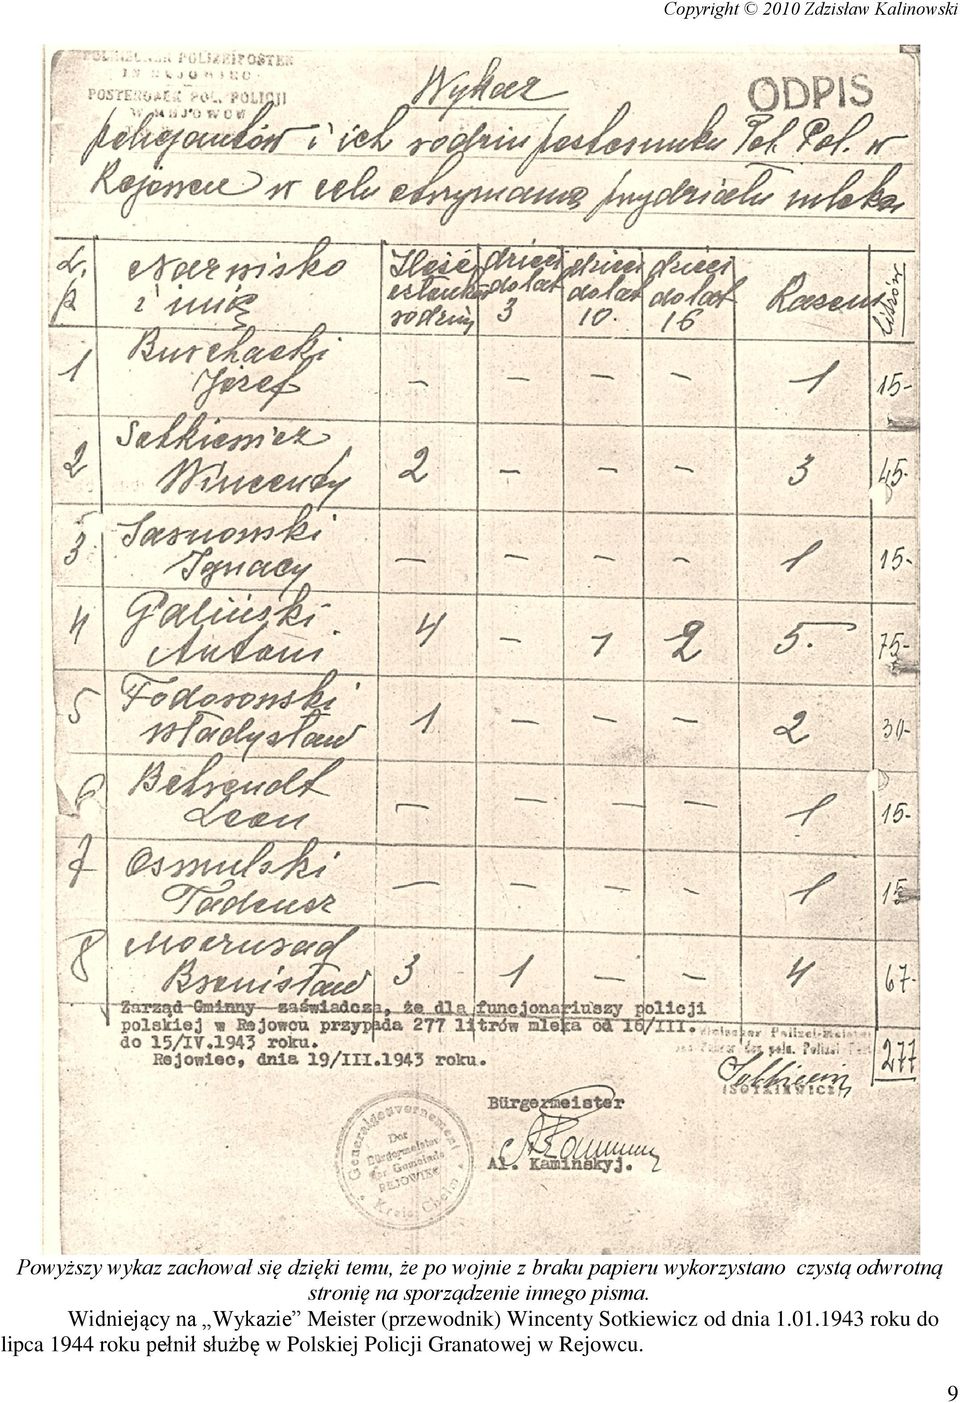 Copyright © 2010 Zdzisław Kalinowski
POLIZEIPOSTEN
POSTERUNEK POL. POLICJI
Wykaz
ODPIS
policjantów i ich rodzin posterunku Pol. Pol. w
Rejowcu w celu otrzymania przydziału mleka
L. p. Nazwisko i imię Ilość członków rodziny dzieci do lat 3 dzieci do lat 10. dzieci do lat 16 Razem litrów
1 Burchacki Józef — — — — 1 15-
2 Sotkiewicz Wincenty 2 — — — 3 45-
3 Sasnowski Ignacy — — — — 1 15-
4 Galiński Antoni 4 — 1 2 5. 75-
5 Fodorowski Władysław 1 — — — 2 30-
6 Behrendt Leon — — — — 1 15-
7 Osmulski Tadeusz — — — — 1 15
8 Bronisław 3 1 — — 4 67-
Zarząd Gminny zaświadcza, że dla funcjonariuszy policji
polskiej w Rejowcu przypada 277 litrów mleka od 16/III.
do 15/IV.1943 roku.
277
Rejowiec, dnia 19/III.1943 roku.
(SOTKIEWICZ)
Bürgermeister
Al. Kaminskyj.
Generalgouvernement
Der
Bürgermeister
der Gemeinde
REJOWIEC
Kreis Cholm
Powyższy wykaz zachował się dzięki temu, że po wojnie z braku papieru wykorzystano czystą odwrotną
stronię na sporządzenie innego pisma.
Widniejący na „Wykazie” Meister (przewodnik) Wincenty Sotkiewicz od dnia 1.01.1943 roku do
lipca 1944 roku pełnił służbę w Polskiej Policji Granatowej w Rejowcu.
9